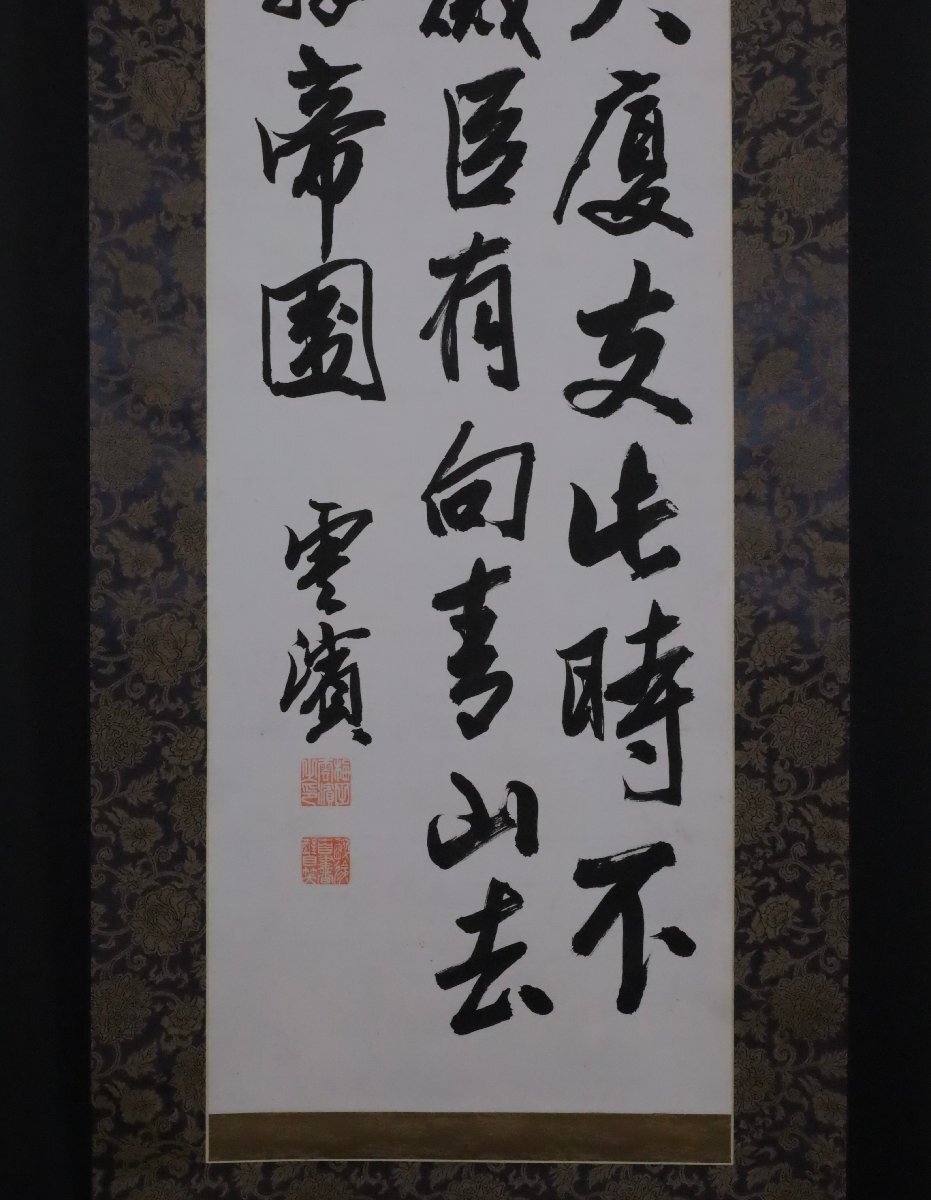 廈支此時不
臣有向青山去
帝
雲濱